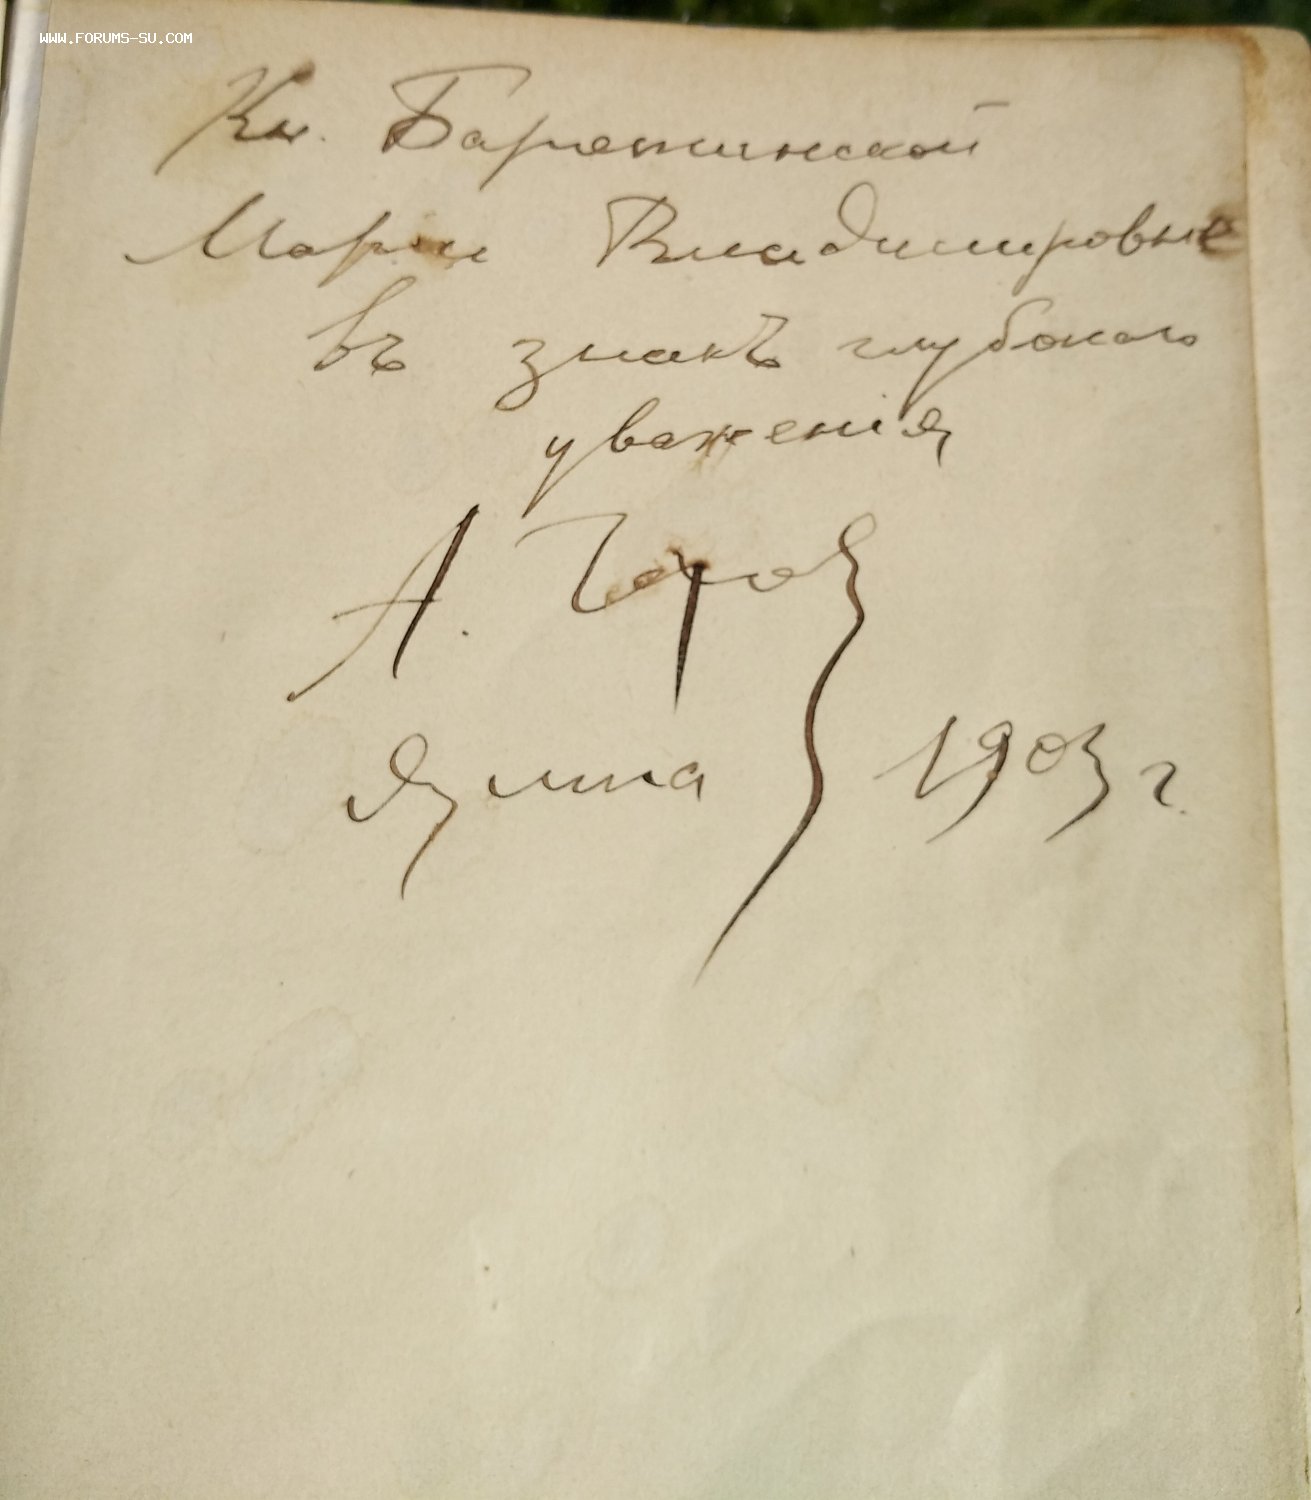 WWW.FORUMS-SU.COM
Кн. Барятинской
Марiи Владимировне
въ знакъ глубокаго
уваженiя
А. Чехов
Ялта 1903 г.